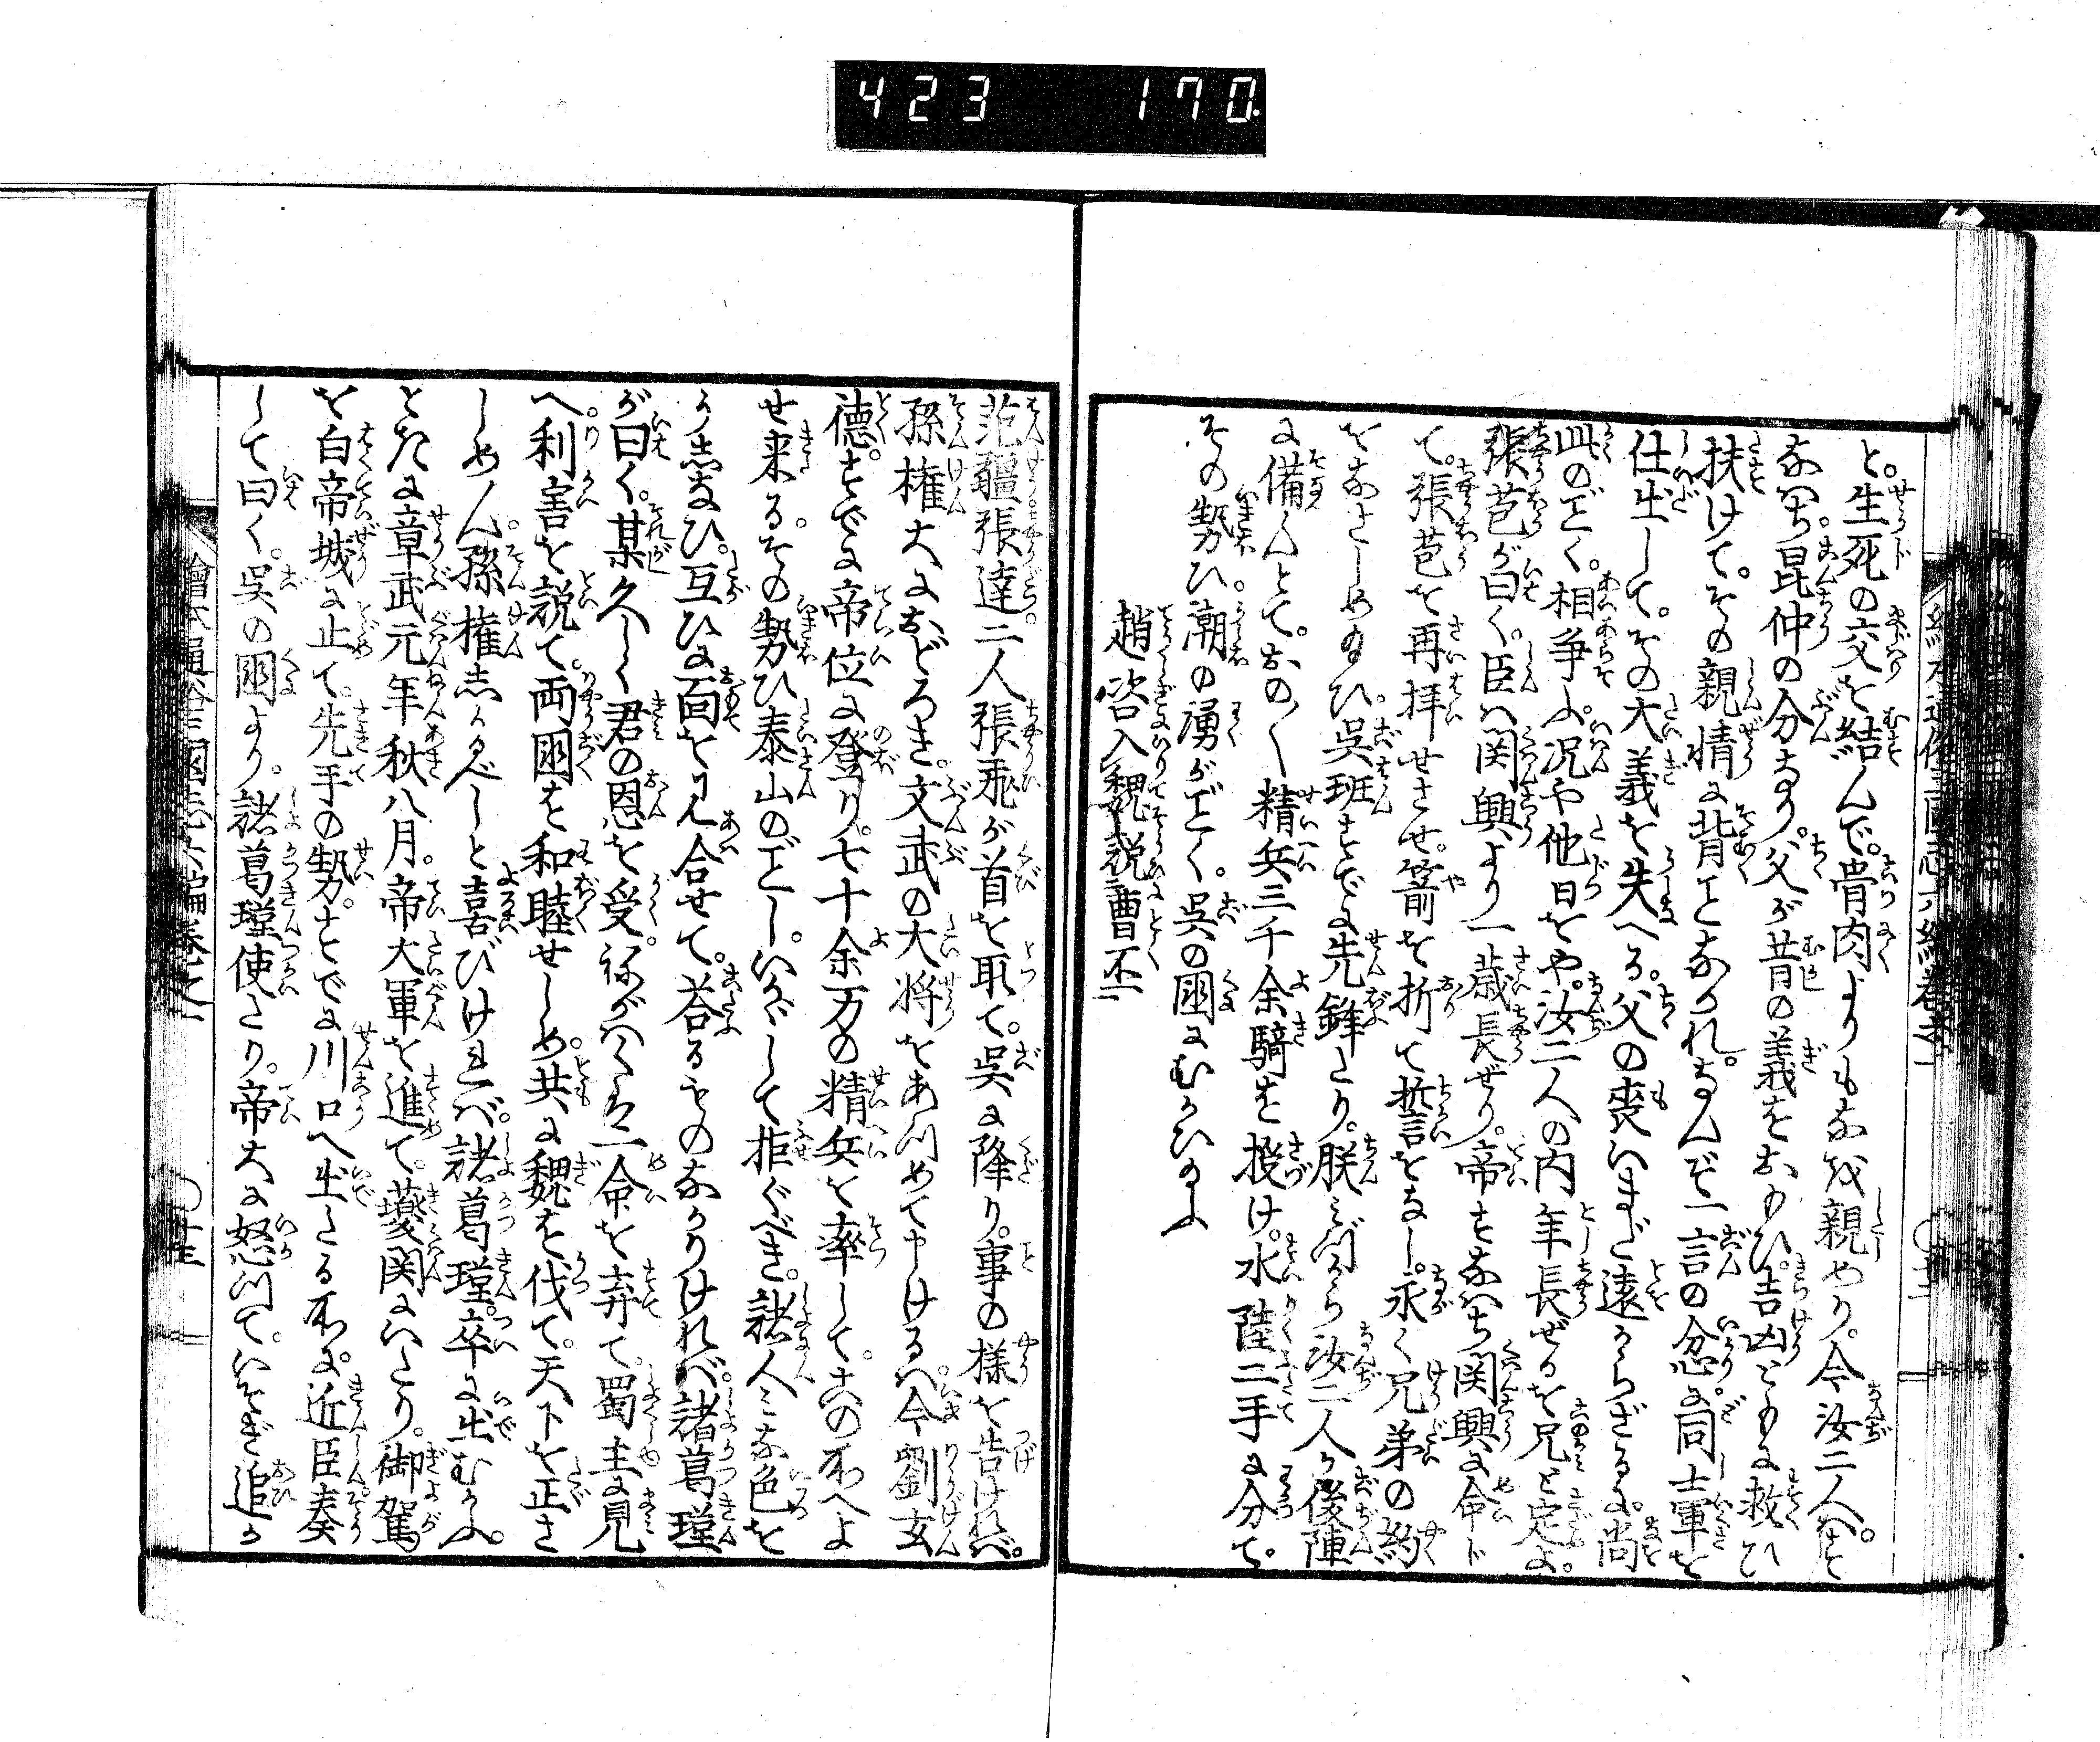 423 170
と。生死の交を結んで。骨肉よりもなほ親めり。今汝二人は。
なほち。昆仲の分なり。父が昔の義をおもひ。吉凶ともに救ひ
扶けて。その親情に背ことなかれ。なんぞ一言の忿に。同士軍を
仕出して。その大義を失へる。父の喪いまだ遠からざるに。尚
此のごく。相争ふ。况や他日をや。汝二人の内年長ぜるを兄と定よ。
張苞が曰く。臣は関興より一歳長ぜり。帝すなはち関興に命じ
て。張苞を再拝せさせ。箭を折て誓をなし。永く兄弟の約
をなさしめ給ひ。呉班すでに先鋒たり。朕みづから汝二人が後陣
に備んとて。おの〱精兵三千余騎を授け。水陸二手に分て。
その勢ひ。潮の湧がごく。呉の国にむかひ給ふ
趙咨入魏説曹丕
范疆張達二人張飛が首を取て。呉に降り。事の様を告ければ。
孫権大におどろき。文武の大将をあつめて申けるは。今劉玄
徳。すでに帝位に登り。七十余万の精兵を率して。此の所へよ
せ来る。その勢ひ泰山のごし。いかゞして拒ぐべき。諸人みな色を
うしなひ。互ひに面を見合せて。荅るものなかりければ。諸葛瑾
が曰く。某久しく君の恩を受。ねがはくは一命を弃て。蜀主に見
へ利害を説て。両国を和睦せしめ。共に魏を伐て。天下を正さ
しめん。孫権しかるべしと喜びければ。諸葛瑾。卒に出むかふ。
ときに章武元年秋八月。帝大軍を進て。夔関にいたり。御駕
を白帝城に止て。先手の勢。すでに川口へ出たる所に。近臣奏
して曰く。呉の国より。諸葛瑾使たり。帝大に怒つて。いそぎ追か
繪本通俗三国志六編巻之一